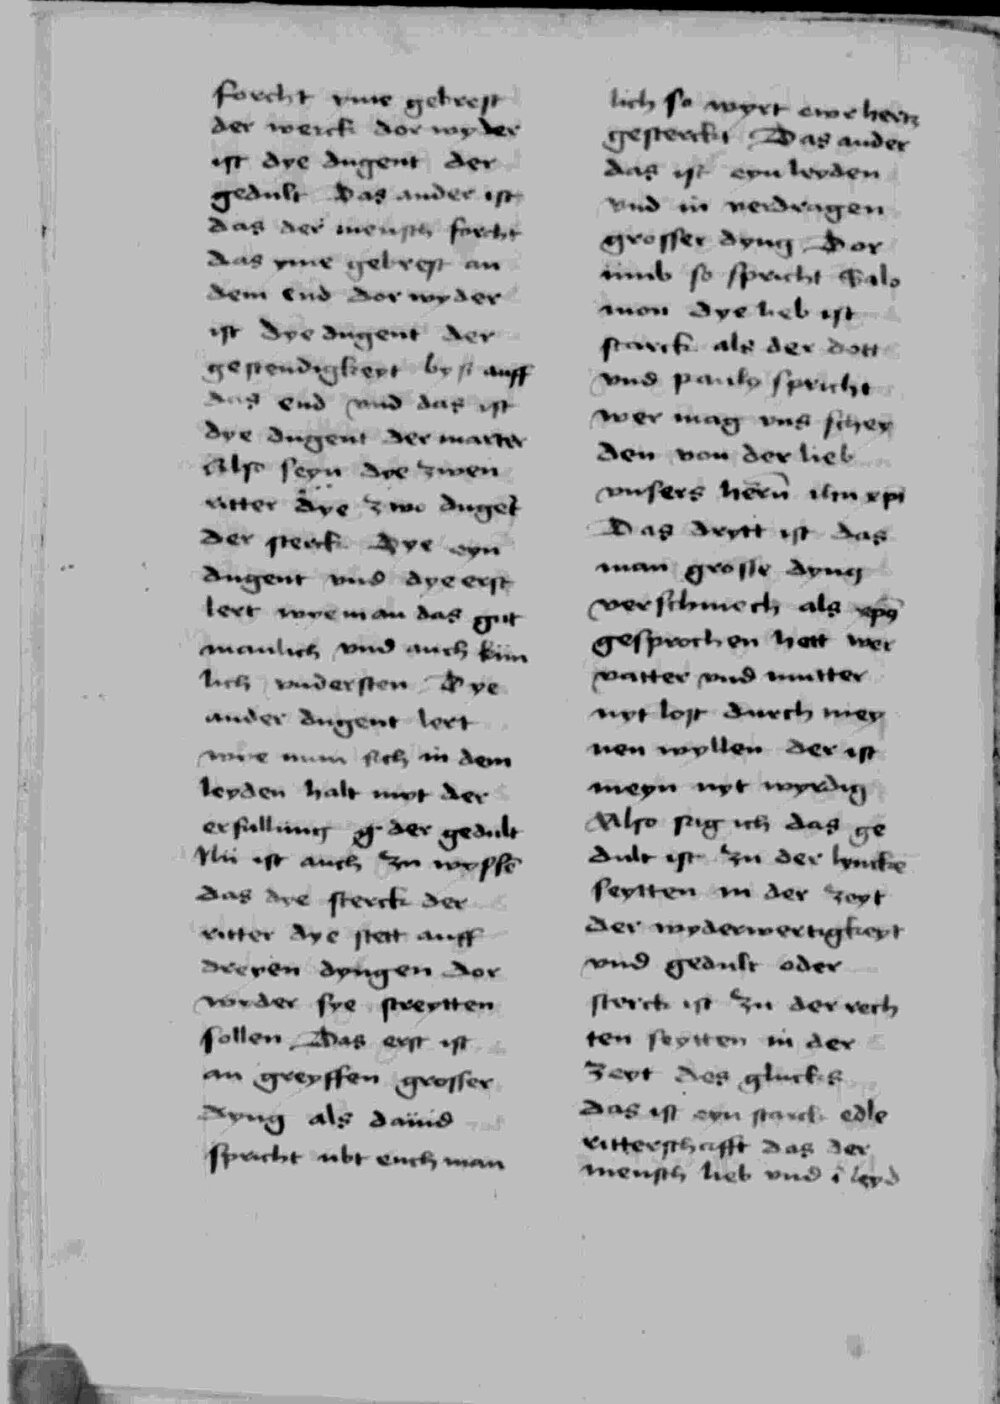 forcht yme gebrest
der werck dor wyder
ist dye dugent der
gedult Das ander ist
das der mensch forcht
das yme gebrest an
dem end dor wyder
ist dye dugent der
gestendigkeyt byß auff
das end vnd das ist
dye dugent der marter
Also seyn dye zwen
ritter dye zwo duget
der sterck Dye eyn
dugent vnd dye erst
lert wye man das gut
manlich vnd auch kün
lich vndersten Dye
ander dugent lert
wye man sich in dem
leyden halt myt der
erfullung der gedult
Nü ist auch zu wysse
das dye sterck der
ritter dye stett auff
dreyen dyngen dor
wyder sye streytten
sollen Das erst ist
an greyffen grosser
dyng als dauid
spricht ubt euch man
lich so wyrt ewr hertz
gesterckt Das ander
das ist eyn leyden
vnd in verdragen
grosser dyng Dor
umb so spricht Salo
mon dye lieb ist
starck als der dott
vnd pauls spricht
wer mag vns schey
den von der lieb
vnsers hern ihu xpi
Das drytt ist das
man grosse dyng
verschmech als xps
gesprochen hett wer
vatter vnd mutter
nyt lost durch mey
nen wyllen der ist
meyn nyt wyrdig
Also sag ich das ge
dult ist zu der lyncke
seytten in der zeyt
der wyderwertigkeyt
vnd gedult oder
sterck ist zu der rech
ten seytten in der
zeyt des glucks
das ist eyn starck edle
ritterschafft das der
mensch lieb vnd i leyd